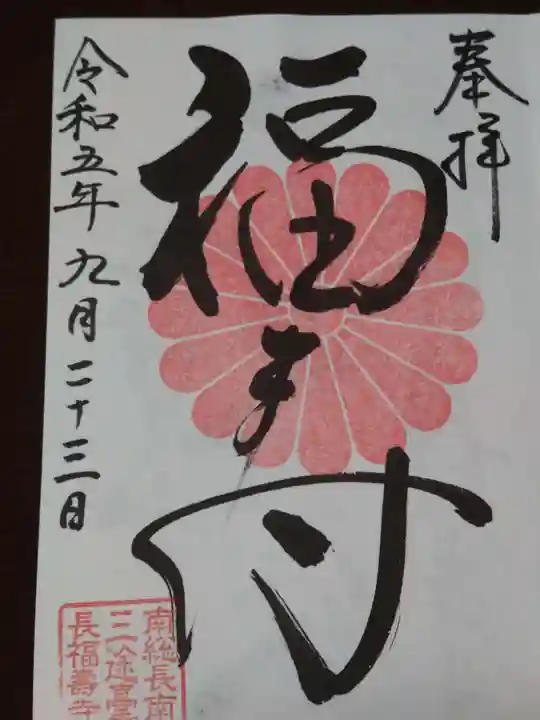 奉拝
福寿
令和五年九月二十三日
南総長南
三途臺
長福壽寺